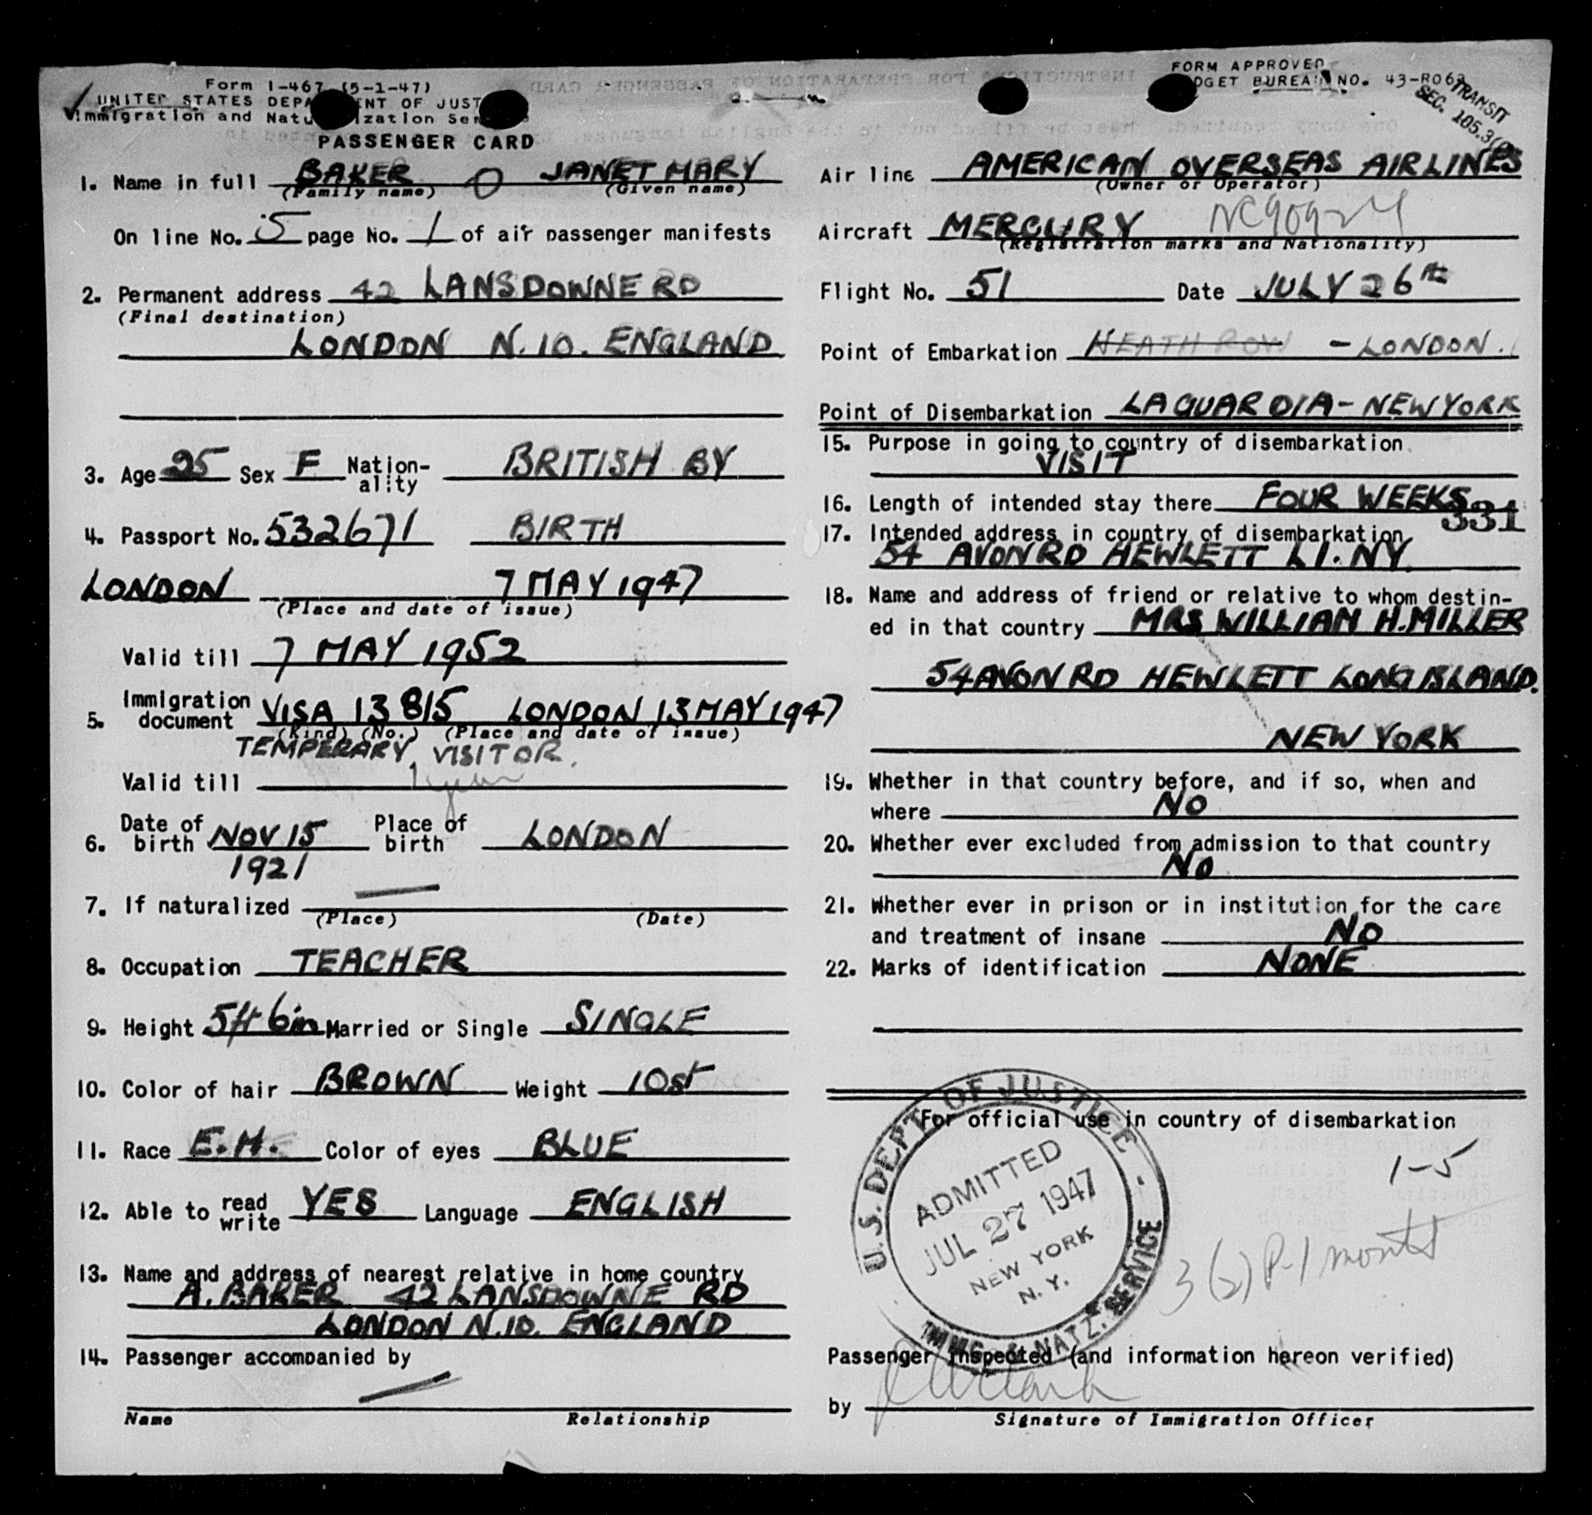 Form I-467 (5-1-47)
UNITED STATES DEPA NT OF JUST
Immigration and Natu ization Ser
PASSENGER CARD
1. Name in full BAKER O JANET MARY
(Family name) (Given name)
On line No. 5 page No. 1 of air passenger manifests
2. Permanent address 42 LANSDOWNE RD
(Final destination)
LONDON N.10. ENGLAND
3. Age 25 Sex F Nation-ality BRITISH BY
4. Passport No. 532671 BIRTH
LONDON 7 MAY 1947
(Place and date of issue)
Valid till 7 MAY 1952
5. Immigration document VISA 13815 LONDON 13 MAY 1947
(Kind) (No.) (Place and date of issue)
TEMPERARY VISITOR.
Valid till 1 year
6. Date of birth NOV 15 Place of birth LONDON
1921
7. If naturalized —
(Place) (Date)
8. Occupation TEACHER
9. Height 5ft 6in Married or Single SINGLE
10. Color of hair BROWN Weight 10st
11. Race E.H. Color of eyes BLUE
12. Able to read write YES Language ENGLISH
13. Name and address of nearest relative in home country
A. BAKER 42 LANSDOWNE RD
LONDON N.10. ENGLAND
14. Passenger accompanied by
—
Name Relationship
FORM APPROVED
DGET BUREAU NO. 43-R063
TRANSIT
SEC. 105.3
Air line AMERICAN OVERSEAS AIRLINES
(Owner or Operator)
Aircraft MERCURY NC90924
(Registration marks and Nationality)
Flight No. 51 Date JULY 26th
Point of Embarkation HEATH ROW - LONDON.
Point of Disembarkation LAGUARDIA - NEW YORK
15. Purpose in going to country of disembarkation
VISIT
16. Length of intended stay there FOUR WEEKS
331
17. Intended address in country of disembarkation
54 AVON RD HEWLETT L.I. NY.
18. Name and address of friend or relative to whom destin-
ed in that country MRS WILLIAM H. MILLER
54 AVON RD HEWLETT LONG ISLAND.
NEW YORK
19. Whether in that country before, and if so, when and
where NO
20. Whether ever excluded from admission to that country
NO
21. Whether ever in prison or in institution for the care
and treatment of insane NO
22. Marks of identification NONE
For official use in country of disembarkation
U.S. DEPT. OF JUSTICE - IMMG. & NATZ. SERVICE
ADMITTED
JUL 27 1947
NEW YORK
N.Y.
1-5
3(2) P-1 month
Passenger inspected (and information hereon verified)
by
Signature of Immigration Officer